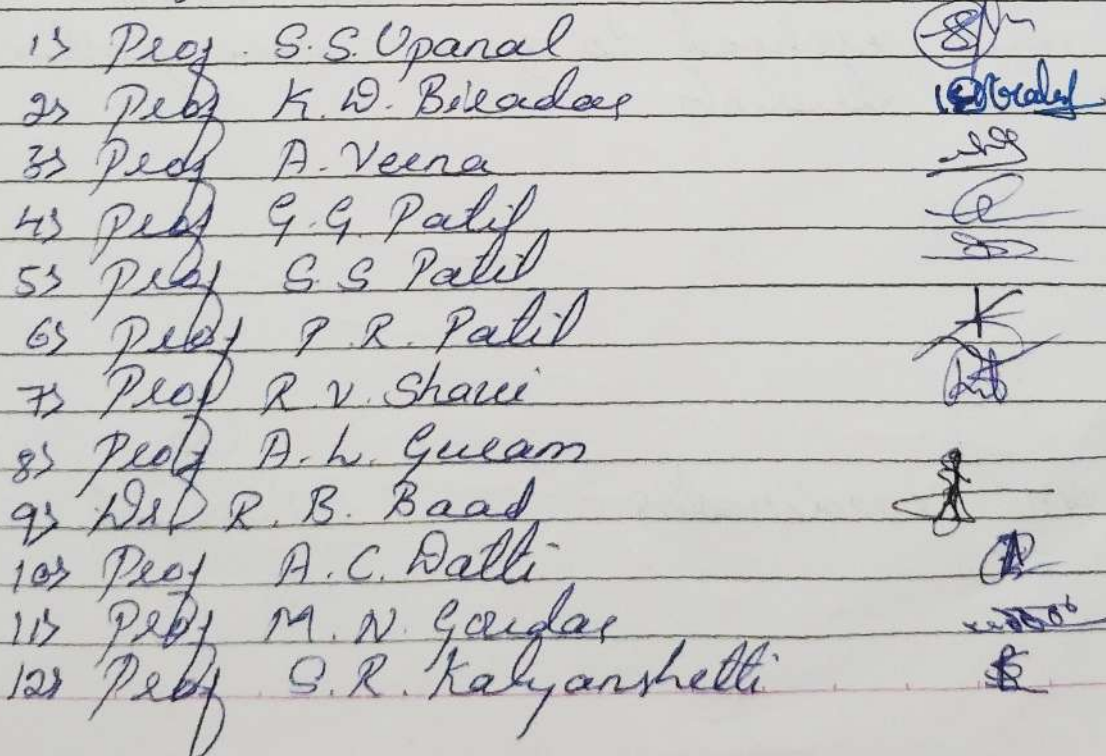 1> Prof. S.S. Upanal
2> Prof K. D. Biradar
3> Prof A. Veena
4> Prof G.G. Patil
5> Prof S.S Patil
6> Prof P.R. Patil
7> Prof R.V. Shavi
8> Prof A.L. Guram
9> Dr R.B. Baad
10> Prof A.C. Datti
11> Prof M.N. Goudar
12> Prof S.R. Kalyanshetti